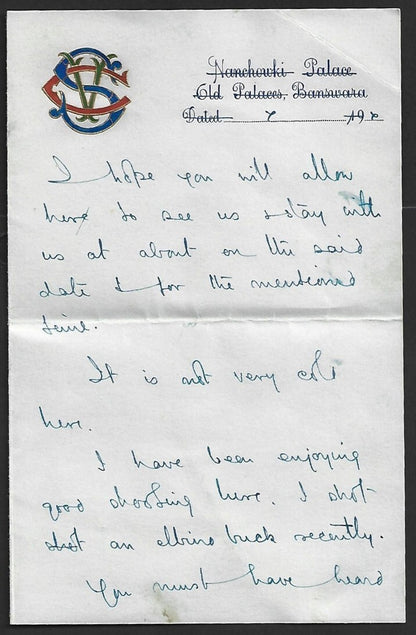 Nanchowki Palace
Old Palaces, Banswara
Dated 7 19
I hope you will allow
here to see us & stay with
us at about on the said
date & for the mentioned
time.
It is not very cold
here.
I have been enjoying
good shooting here. I shot
shot an albino buck recently.
You must have heard